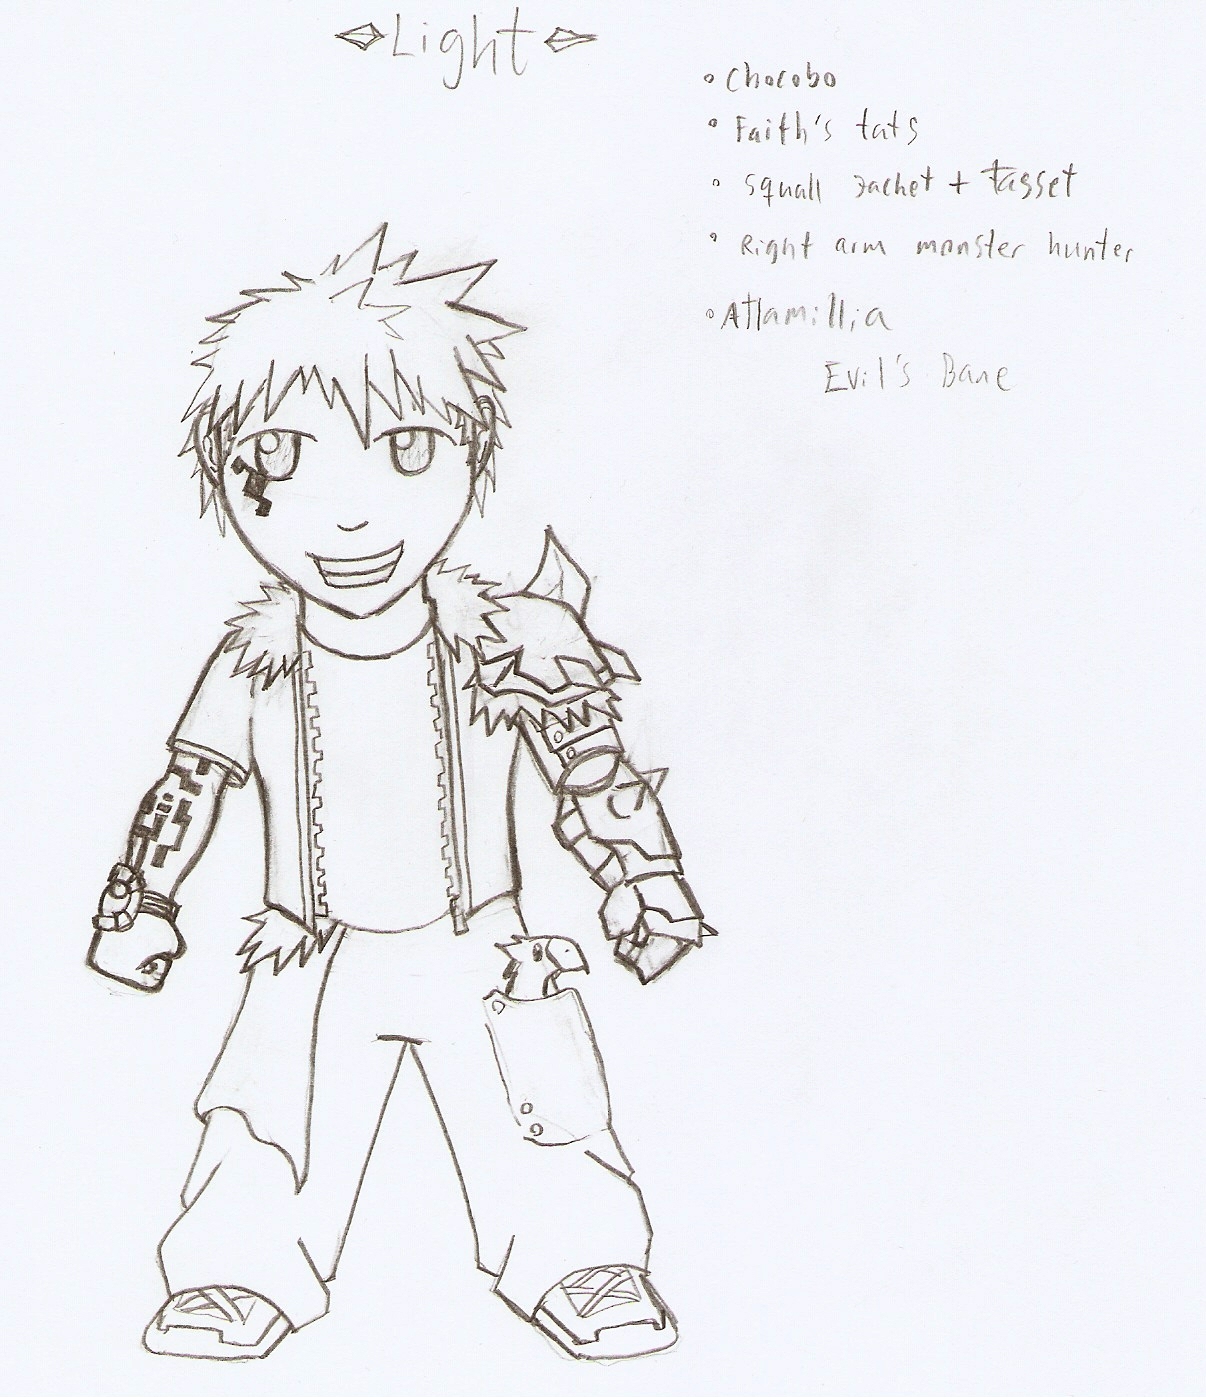 Light
• Chocobo
• Faith's tats
• Squall Jachet + Tasset
• Right arm monster hunter
• Atlamillia
Evil's Bane